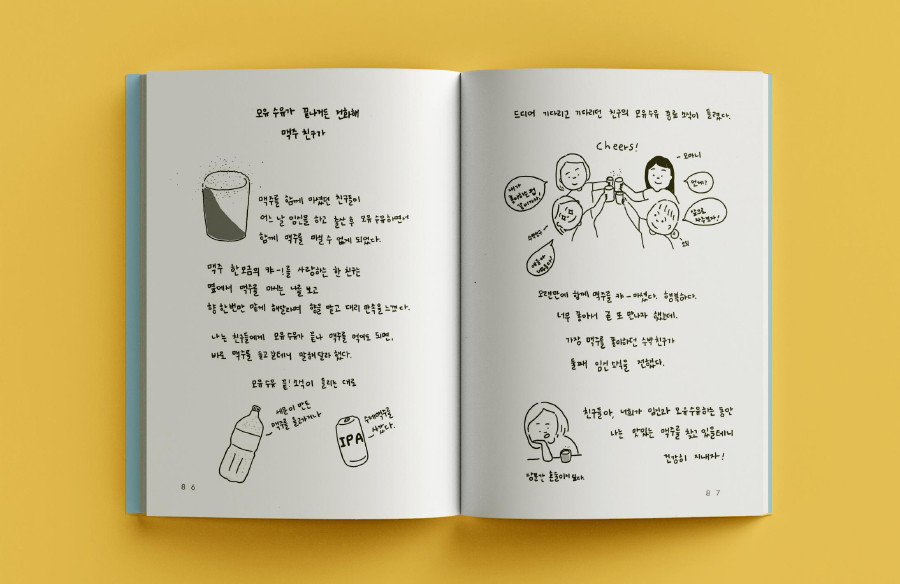 모유 수유가 끝나거든 전화해
맥주 친구가
맥주를 함께 마셨던 친구들이
어느 날 임신을 하고 출산 후 모유수유하면서
함께 맥주를 마실 수 없게 되었다.
맥주 한모금의 캬-!를 사랑하는 한 친구는
옆에서 맥주를 마시는 나를 보고
향 한번만 맡게 해달라며 향을 맡고 대리만족을 느꼈다.
나는 친구들에게 모유수유가 끝나 맥주를 먹어도 되면,
바로 맥주를 들고 갈테니 말해달라 했다.
모유수유 끝! 소식이 들리는 대로
만든
맥주를 들려가거나
IPA
수제맥주를
샀다.
86
드디어 기다리고 기다리던 친구의 모유수유 종료 소식이 들렸다.
Cheers!
내가
언제!
오랜만에 함께 맥주를 캬-마셨다. 행복하다.
너무 좋아서 곧 또 만나자 했는데,
가장 맥주를 좋아하던 수박친구가
둘째 임신 소식을 전했다.
친구들아, 너희가 임신과 모유수유하는 동안
나는 맛있는 맥주를 찾고 있을테니
건강히 지내자!
당분간
87